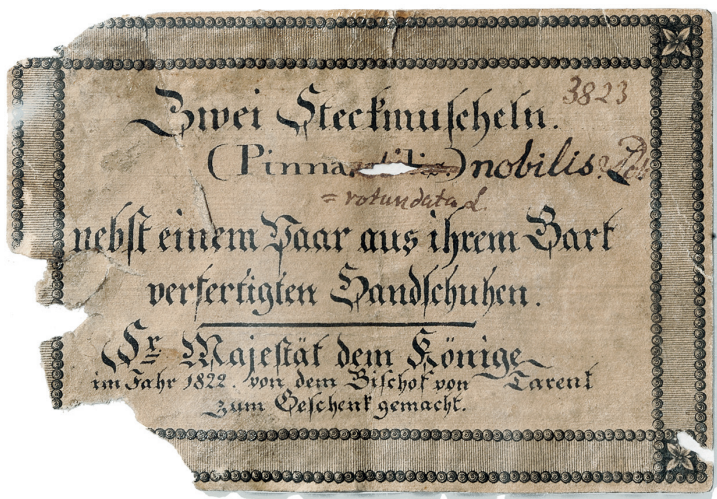 3823
Zwei Steckmuscheln.
(Pinna ) nobilis.
= rotundata L.
nebst einem Paar aus ihrem Bart
verfertigten Handschuhen.
Sr Majestät dem Könige
im Jahr 1822. von dem Bischof von Tarent
zum Geschenk gemacht.